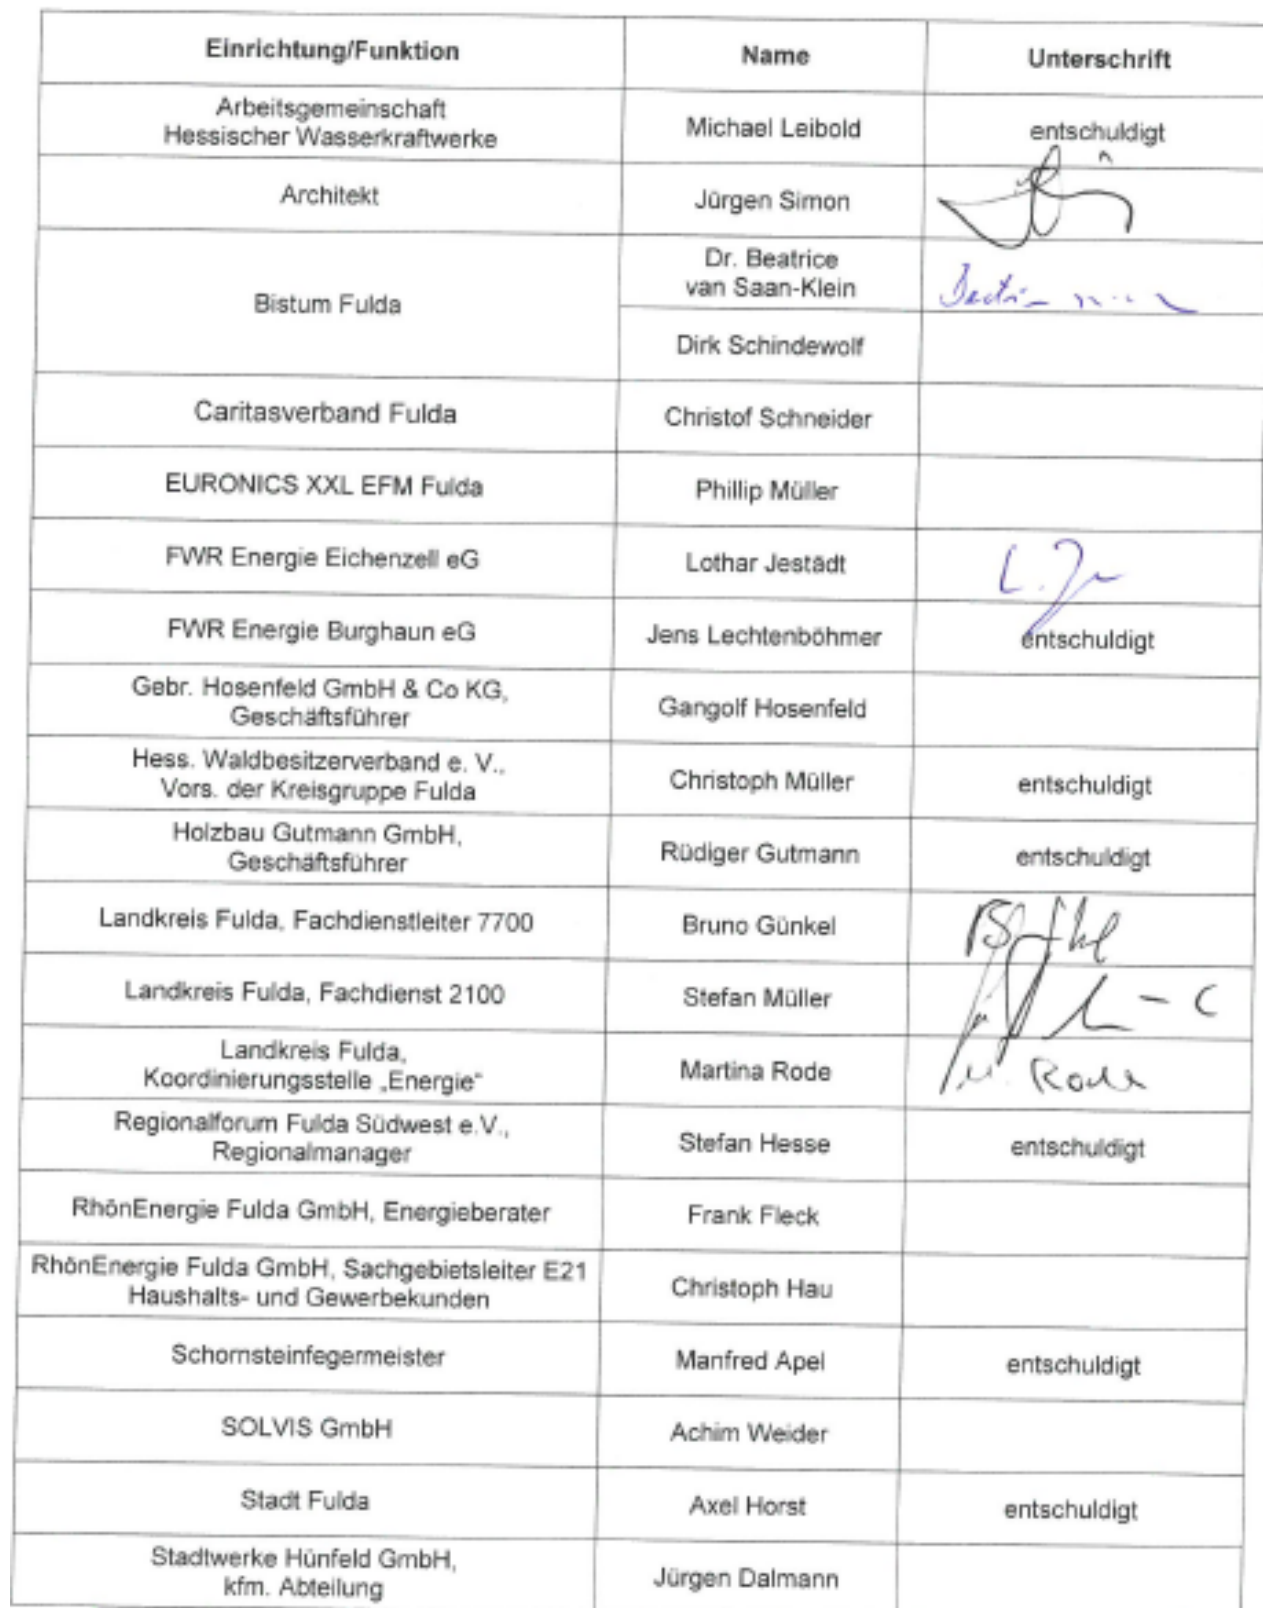 Einrichtung/Funktion Name Unterschrift
Arbeitsgemeinschaft
Hessischer Wasserkraftwerke Michael Leibold entschuldigt
Architekt Jürgen Simon
Bistum Fulda
Dr. Beatrice
van Saan-Klein
Dirk Schindewolf
Caritasverband Fulda Christof Schneider
EURONICS XXL EFM Fulda Phillip Müller
FWR Energie Eichenzell eG Lothar Jestädt
FWR Energie Burghaun eG Jens Lechtenböhmer entschuldigt
Gebr. Hosenfeld GmbH & Co KG,
Geschäftsführer Gangolf Hosenfeld
Hess. Waldbesitzerverband e. V.,
Vors. der Kreisgruppe Fulda Christoph Müller entschuldigt
Holzbau Gutmann GmbH,
Geschäftsführer Rüdiger Gutmann entschuldigt
Landkreis Fulda, Fachdienstleiter 7700 Bruno Günkel
Landkreis Fulda, Fachdienst 2100 Stefan Müller
Landkreis Fulda,
Koordinierungsstelle „Energie“ Martina Rode M. Rode
Regionalforum Fulda Südwest e.V.,
Regionalmanager Stefan Hesse entschuldigt
RhönEnergie Fulda GmbH, Energieberater Frank Fleck
RhönEnergie Fulda GmbH, Sachgebietsleiter E21
Haushalts- und Gewerbekunden Christoph Hau
Schornsteinfegermeister Manfred Apel entschuldigt
SOLVIS GmbH Achim Weider
Stadt Fulda Axel Horst entschuldigt
Stadtwerke Hünfeld GmbH,
kfm. Abteilung Jürgen Dalmann